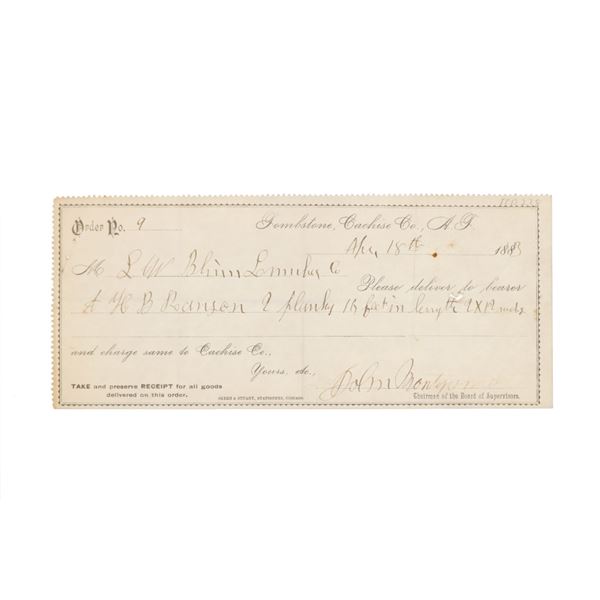 Order No. 9
Tombstone, Cachise Co., A. T.
Apr 18th 1883
M L W Blinn Lumber Co
Please deliver to bearer
H B Ranson 2 planks 16 feet in length 2X12
and charge same to Cachise Co.,
Yours, &c.,
TAKE and preserve RECEIPT for all goods
delivered on this order.
STATIONERS, CHICAGO.
John Montgomery
Chairman of the Board of Supervisors.